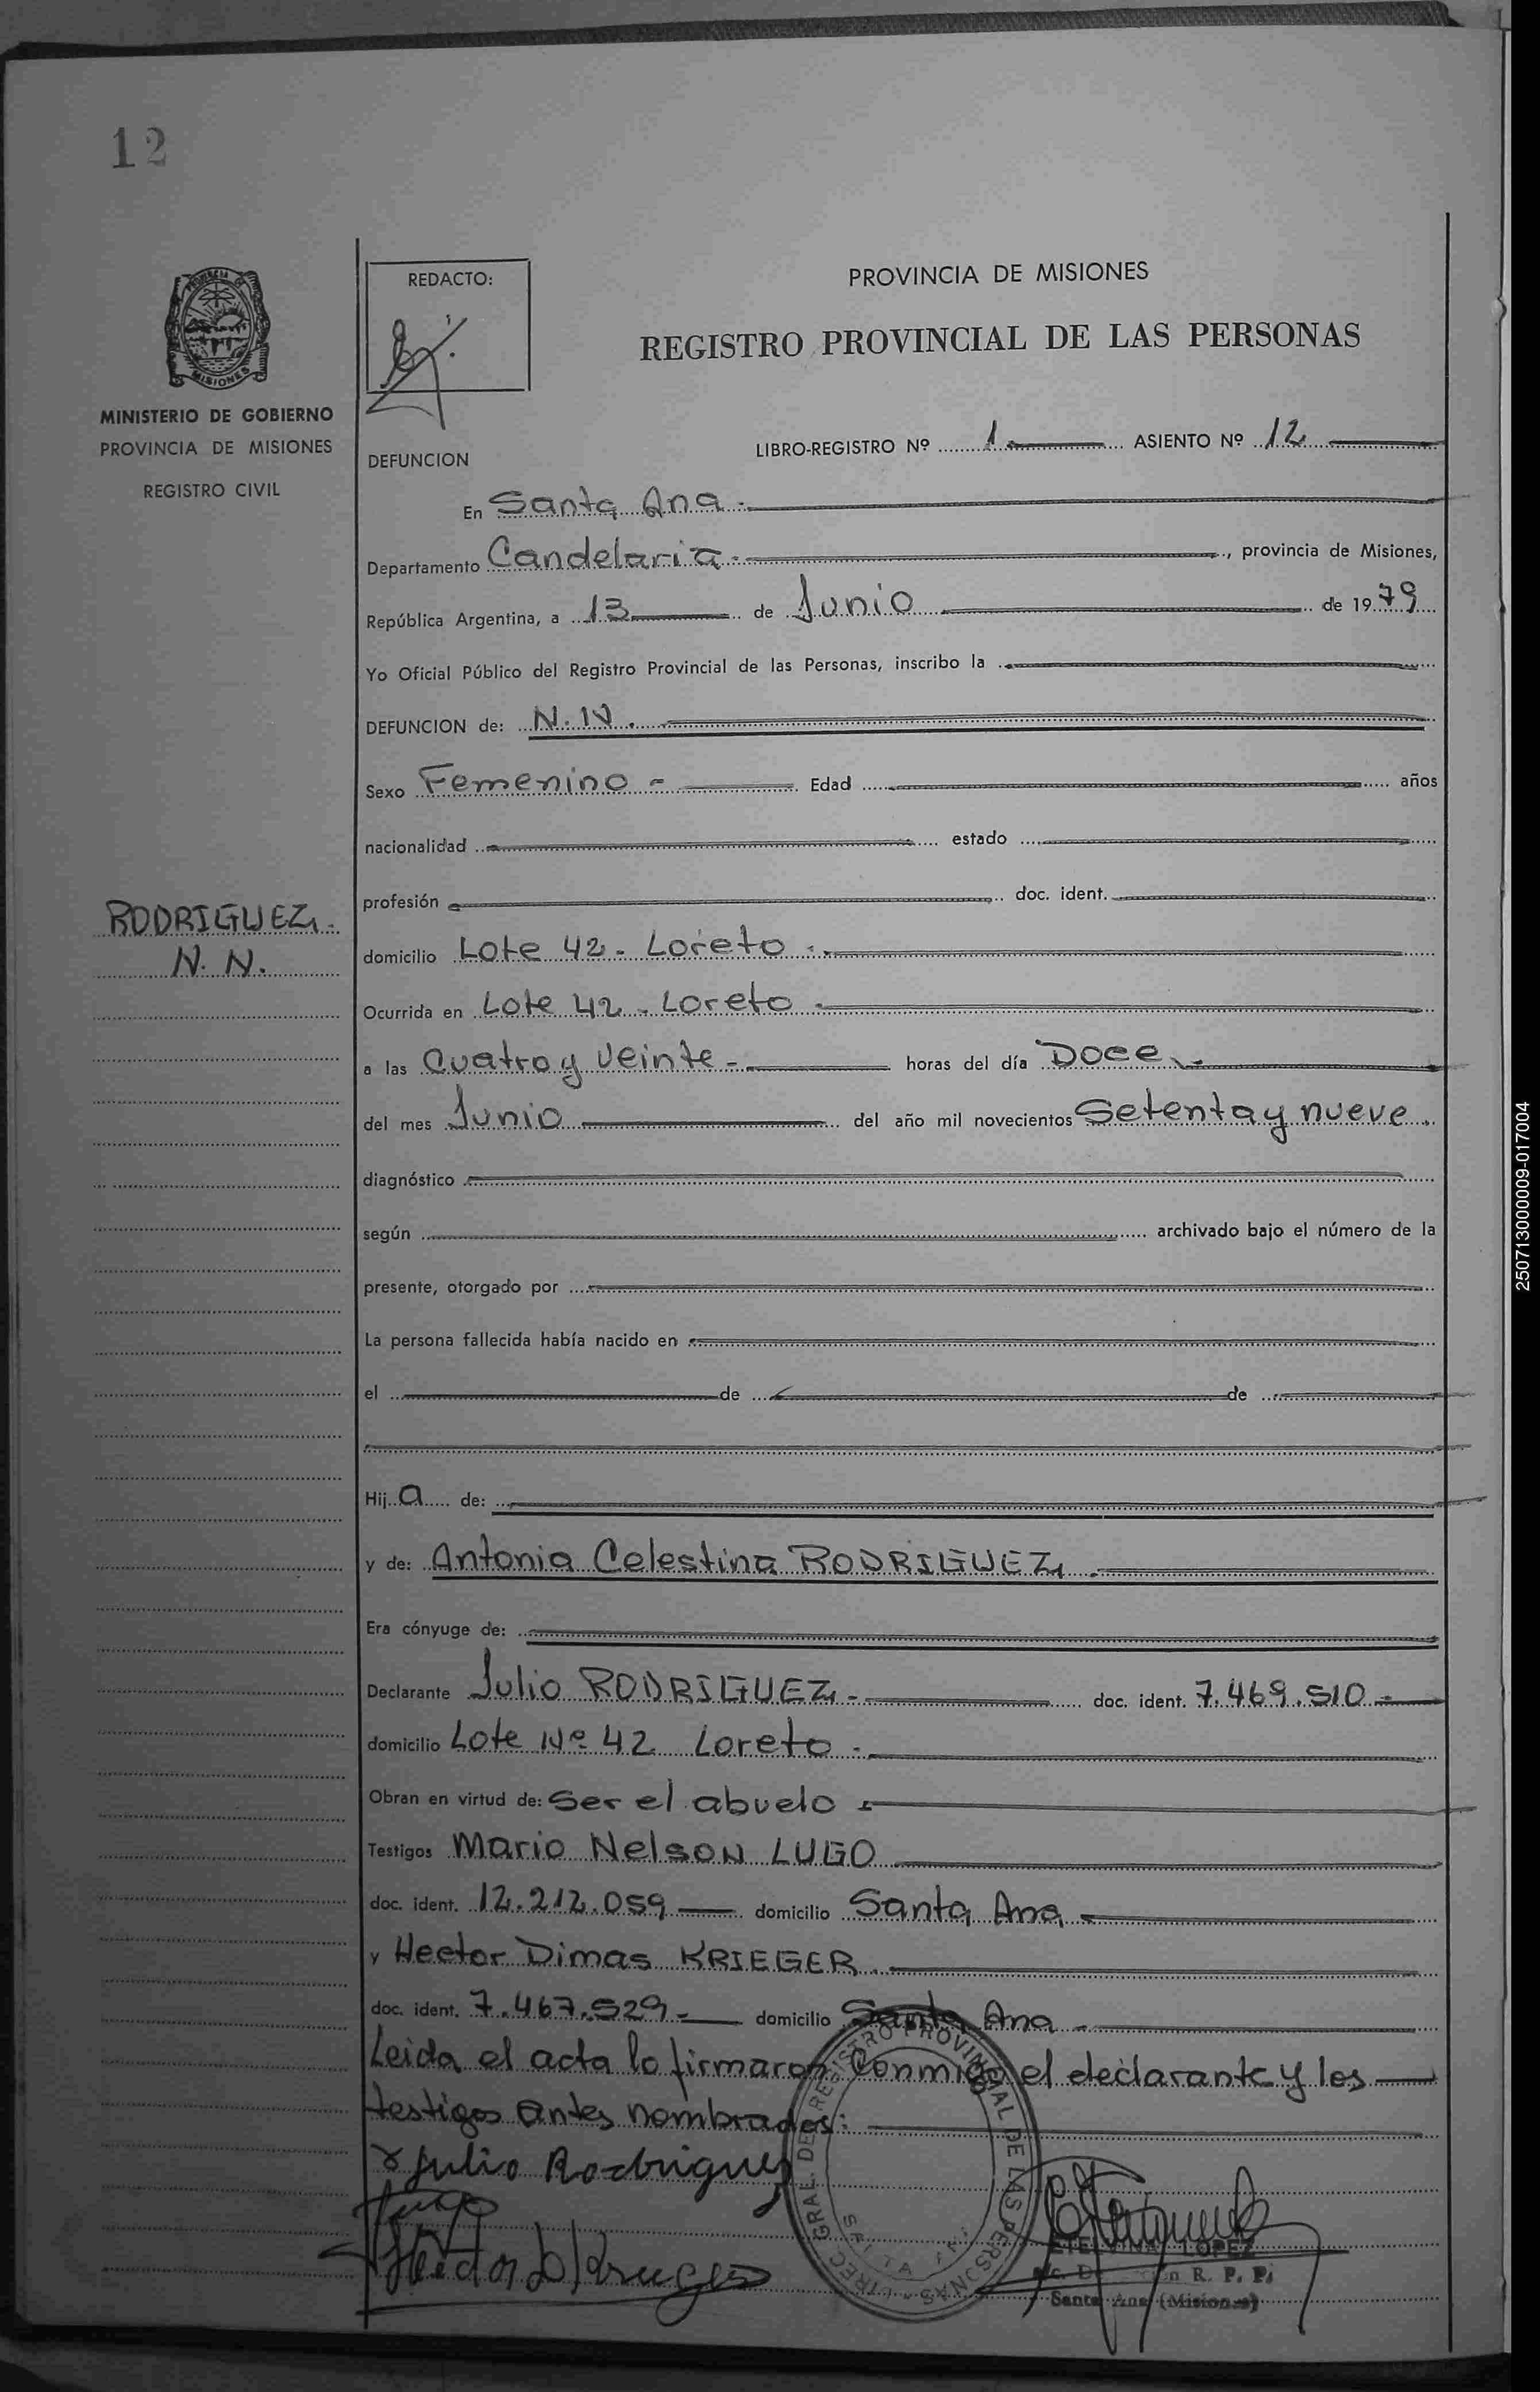 12
PROVINCIA DE
MISIONES
MINISTERIO DE GOBIERNO
PROVINCIA DE MISIONES
REGISTRO CIVIL
RODRIGUEZ.
N. N.
REDACTO:
PROVINCIA DE MISIONES
REGISTRO PROVINCIAL DE LAS PERSONAS
LIBRO-REGISTRO Nº 1 ASIENTO Nº 12
DEFUNCION
En Santa Ana.
Departamento Candelaria. , provincia de Misiones,
República Argentina, a 13 de Junio de 1979
Yo Oficial Público del Registro Provincial de las Personas, inscribo la
DEFUNCION de: N.N.
Sexo Femenino - Edad años
nacionalidad estado
profesión doc. ident.
domicilio Lote 42 - Loreto -.
Ocurrida en Lote 42 - Loreto -
a las Cuatro y Veinte - horas del día Doce -.
del mes Junio del año mil novecientos Setenta y nueve.
diagnóstico
según archivado bajo el número de la
presente, otorgado por
La persona fallecida había nacido en
el de de
Hija de:
y de: Antonia Celestina RODRIGUEZ.
Era cónyuge de:
Declarante Julio RODRIGUEZ - doc. ident. 7.469.510 -
domicilio Lote Nº 42 Loreto -.
Obran en virtud de: Ser el abuelo
Testigos Mario Nelson LUGO
doc. ident. 12.212.059 domicilio Santa Ana
y Hector Dimas KRIEGER.
doc. ident. 7.467.529 - domicilio Santa Ana -
Leida el acta lo firmaron Conmigo el declarante y los
testigos antes nombrados:
Julio Rodriguez
Lugo
Hector D Krieger
DIREC. GRAL. DEL REGISTRO PROVINCIAL DE LAS PERSONAS
LOPEZ
R. P. P.
Santa Ana (Misiones)
25071300009-017004